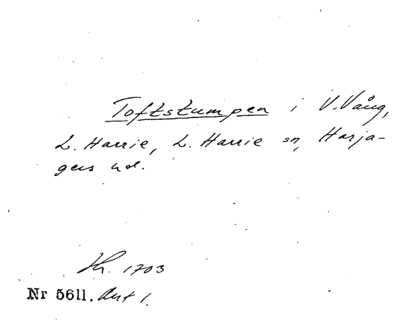 Toftstumpen i V. Vång,
L. Harrie, L. Harrie sn, Harja-
gers hd.
Kr. 1703
Nr 5611. Ant 1.